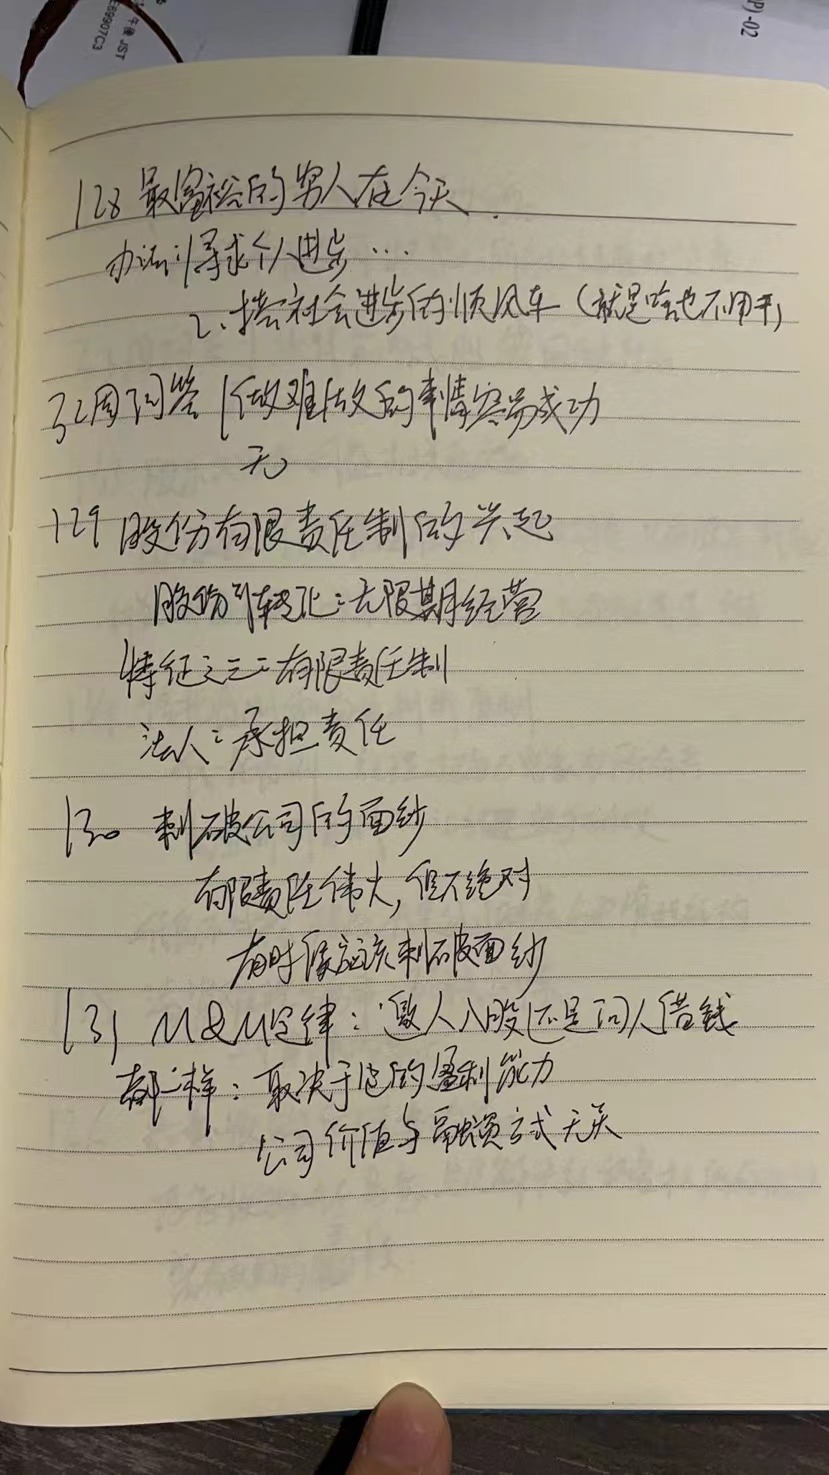 P)-02
午後 JST
E69907C3
128 最富裕的男人在今天.
办法:1寻求个人进步…
2、搭社会进步的顺风车(就是啥也不用干)
32周问答 1做难做的事情容易成功
无
129 股份有限责任制的兴起
股份 转让:无限期经营
特征之三:有限责任制
法人:承担责任
130 刺破公司的面纱
有限责任伟大,但不绝对
有时候应该刺破面纱
131 M&M定律:邀人入股还是问人借钱
都一样:取决于它的盈利能力
公司价值与融资方式无关